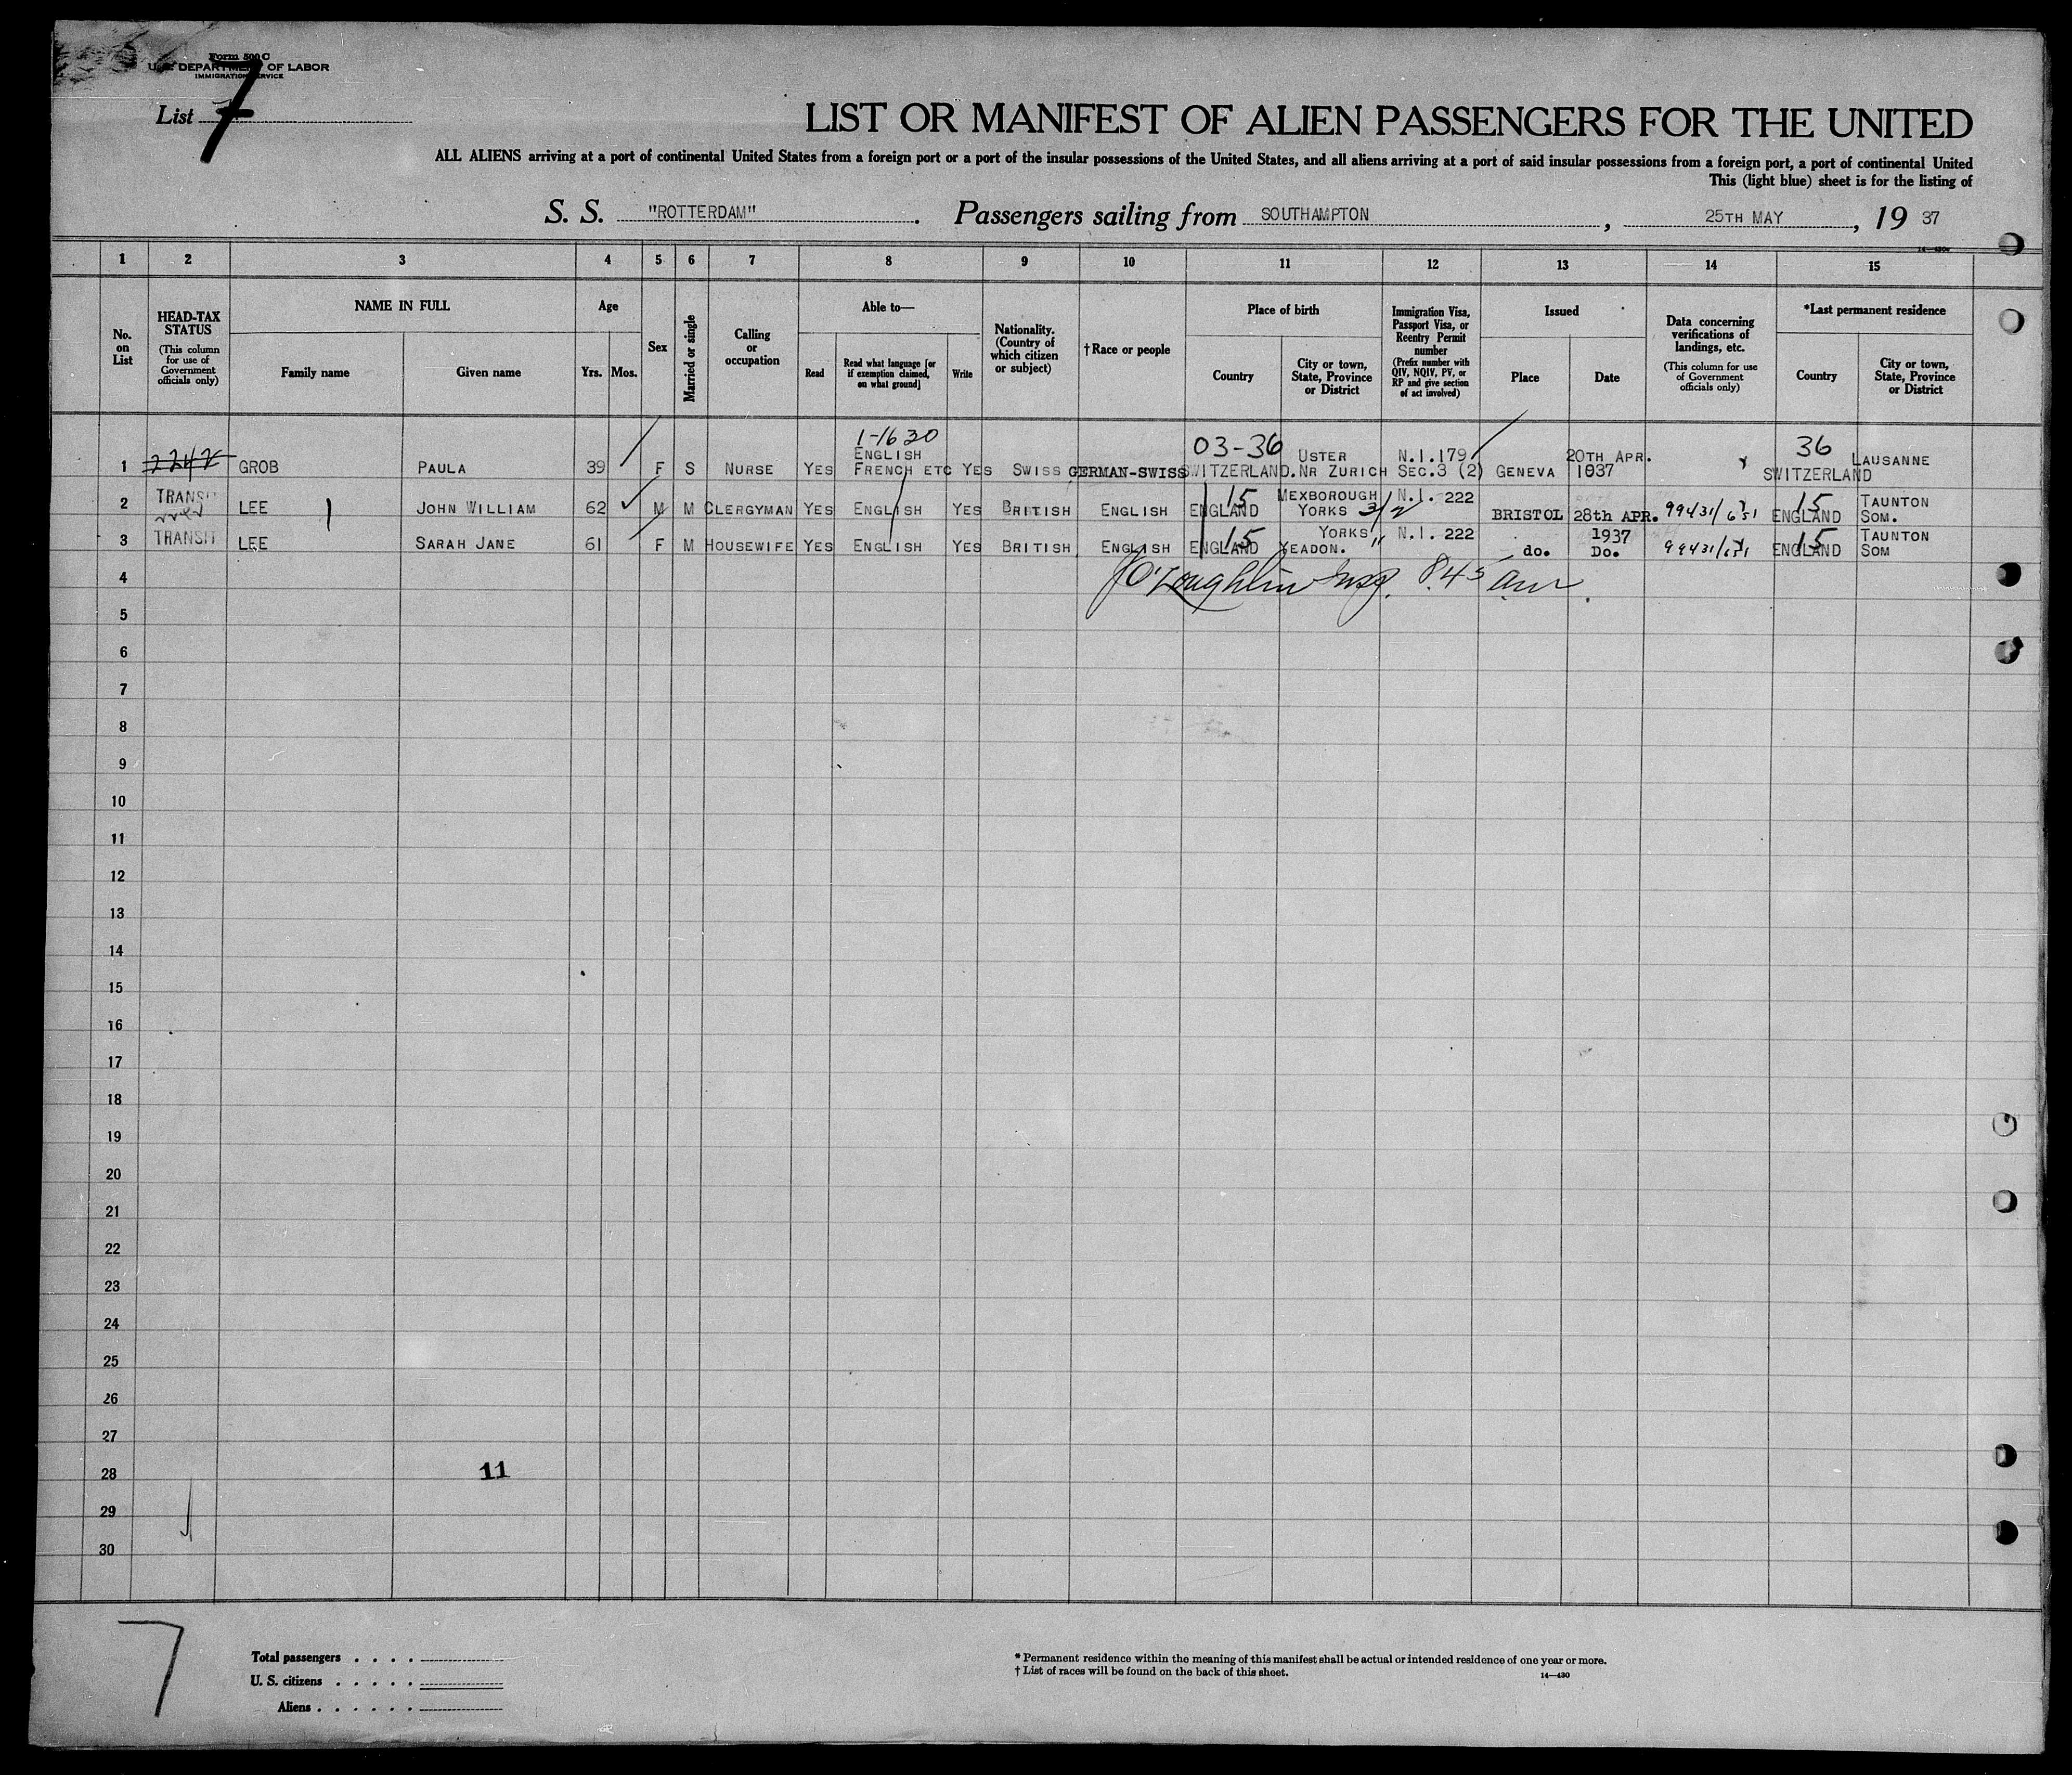 Form 500 C
U. S. DEPARTMENT OF LABOR
IMMIGRATION SERVICE
List 7
LIST OR MANIFEST OF ALIEN PASSENGERS FOR THE UNITED
ALL ALIENS arriving at a port of continental United States from a foreign port or a port of the insular possessions of the United States, and all aliens arriving at a port of said insular possessions from a foreign port, a port of continental United
This (light blue) sheet is for the listing of
S. S. "ROTTERDAM". Passengers sailing from SOUTHAMPTON, 25TH MAY, 19 37
1 2 3 4 5 6 7 8 9 10 11 12 13 14 15
No. on List
HEAD-TAX STATUS (This column for use of Government officials only)
NAME IN FULL
Family name
Given name
Age
Yrs.
Mos.
Sex
Married or single
Calling or occupation
Able to—
Read
Read what language [or if exemption claimed, on what ground]
Write
Nationality. (Country of which citizen or subject)
†Race or people
Place of birth
Country
City or town, State, Province or District
Immigration Visa, Passport Visa, or Reentry Permit number (Prefix number with QIV, NQIV, PV, or RP and give section of act involved)
Issued
Place
Date
Data concerning verifications of landings, etc. (This column for use of Government officials only)
*Last permanent residence
Country
City or town, State, Province or District
1-1630
03-36
36
1 2242 GROB PAULA 39 F S NURSE YES ENGLISH FRENCH ETC YES SWISS GERMAN-SWISS SWITZERLAND. USTER NR ZURICH N.I.179 SEC.3 (2) GENEVA 20TH APR. 1937 SWITZERLAND LAUSANNE
2 TRANSIT LEE JOHN WILLIAM 62 M M CLERGYMAN YES ENGLISH YES BRITISH ENGLISH 15 ENGLAND MEXBOROUGH YORKS 3/2 N.I. 222 BRISTOL 28th APR. 1937 99431/ 15 ENGLAND TAUNTON SOM.
3 TRANSIT LEE SARAH JANE 61 F M HOUSEWIFE YES ENGLISH YES BRITISH ENGLISH 15 ENGLAND YORKS YEADON. " N.I. 222 do. Do. 99431/ 15 ENGLAND TAUNTON SOM
4 O'Loughlin Insp. 8.45 am.
5
6
7
8
9
10
11
12
13
14
15
16
17
18
19
20
21
22
23
24
25
26
27
28 11
29
30
7
Total passengers . . . .
U. S. citizens . . . . .
Aliens . . . . . .
* Permanent residence within the meaning of this manifest shall be actual or intended residence of one year or more.
† List of races will be found on the back of this sheet.
14—430